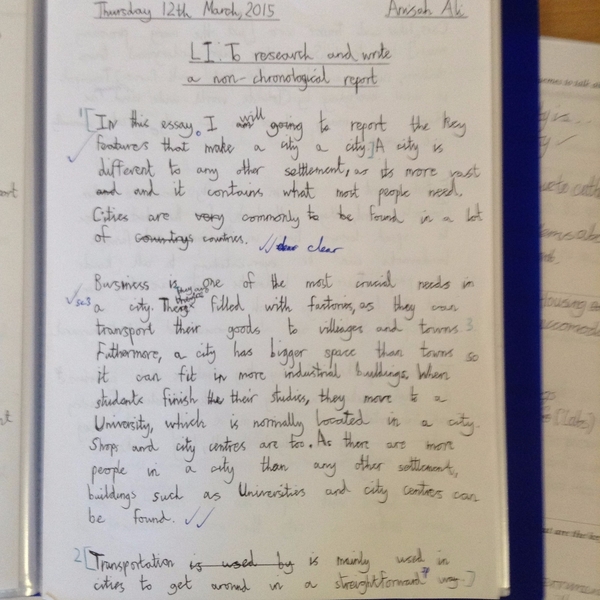 Thursday 12th March, 2015 Anisah Ali
L.I. To research and write
a non-chronological report
1[In this essay. I am will going to report the key
features that make a city a city.] A city is
different to any other settlement, as its more vast
and and it contains what most people need.
Cities are very commonly to be found in a lot
of countrys countries. ✓✓ clear clear
Business is one of the most crucial needs in
a city. There filled with factories, as they can
transport their goods to villeages and towns. 3
Futhermore, a city has bigger space than towns so
it can fit in more industrial buildings. When
students finish the their studies, they move to a
University, which is normally located in a city.
Shops and city centres are too. As there are more
people in a city than any other settlement,
buildings such as Universities and city centres can
be found. ✓✓
2[Transportation is used by is mainly used in
cities to get around in a straightforward way.]